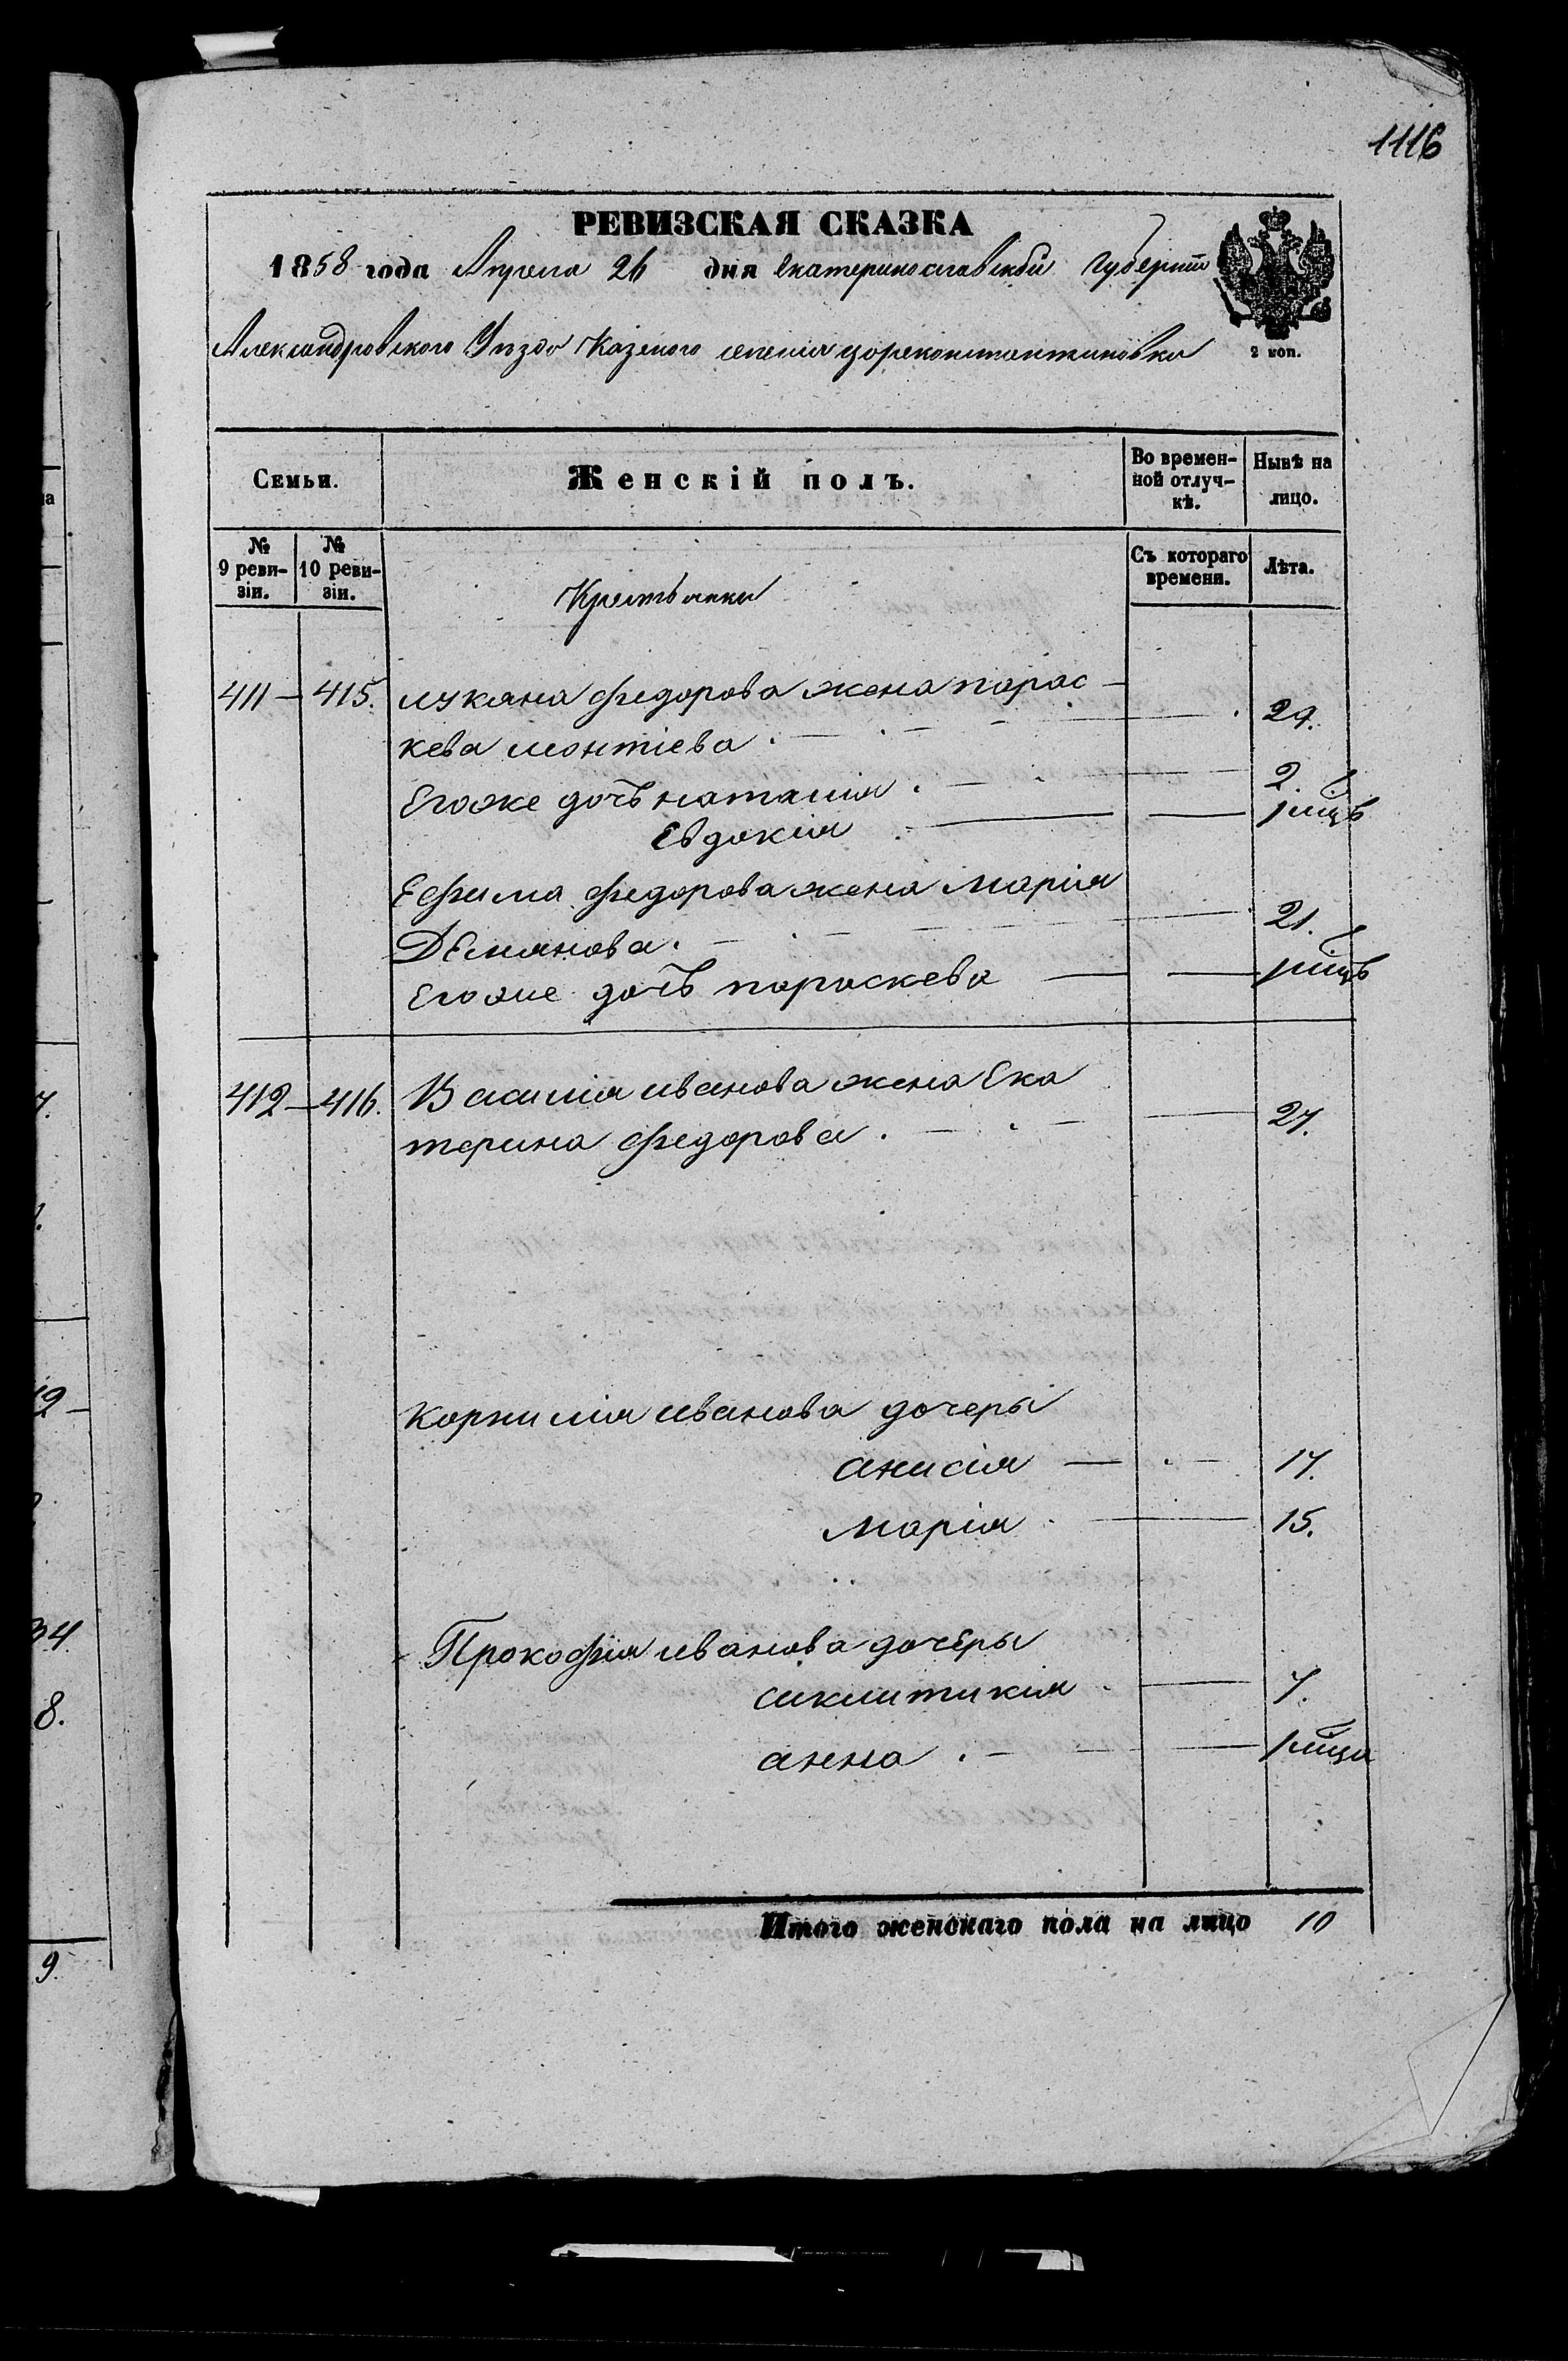 1116
РЕВИЗСКАЯ СКАЗКА
1858 года Апреля 26 дня Екатеринославской Губернии
Александровского Уезда Казеного селения цареконстантиновки
2 коп.
Семьи. Женскій полъ. Во времен-ной отлуч-кѣ. Нынѣ на лицо.
№ 9 реви-зіи. № 10 реви-зіи. Съ котораго времени. Лѣта.
Крестьянки
411 – 415. лукяна федорова жена парас-
кева монтіева 29.
Егоже дочъ наталия 2.
Евдокия 1 мцъ
Ефима федорова жена Мария
Демянова 21.
Егоже дочъ параскева 1 мцъ
412 – 416. Василия иванова жена Ека
терина федорова 27.
Корнилия иванова дочеры
анисия 17.
Мария 15.
Прокофия иванова дочеры
сиклитикия 7.
анна 1 мца
Итого женскаго пола на лицо 10
7.
12 –
34
8.
9.